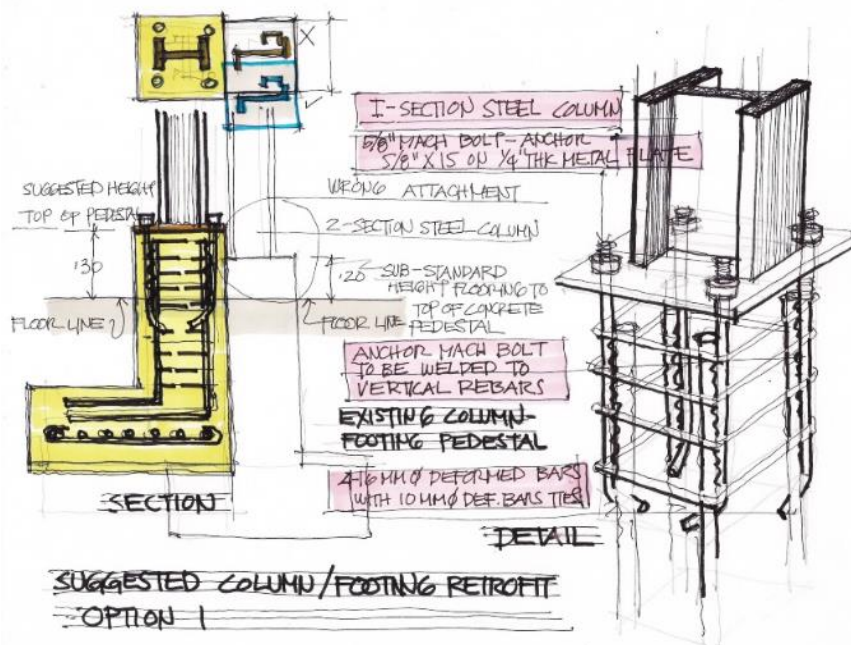 X
I-SECTION STEEL COLUMN
5/8" MACH BOLT-ANCHOR
5/8" X 15 ON 1/4" THK METAL PLATE
SUGGESTED HEIGHT
TOP OF PEDESTAL
WRONG ATTACHMENT
Z-SECTION STEEL COLUMN
.30
.20
SUB-STANDARD
HEIGHT FLOORING TO
TOP OF CONCRETE
PEDESTAL
FLOOR LINE
FLOOR LINE
ANCHOR MACH BOLT
TO BE WELDED TO
VERTICAL REBARS
EXISTING COLUMN-
FOOTING PEDESTAL
4-16MMØ DEFORMED BARS
WITH 10MMØ DEF. BARS TIES
SECTION
DETAIL
SUGGESTED COLUMN/FOOTING RETROFIT
OPTION 1